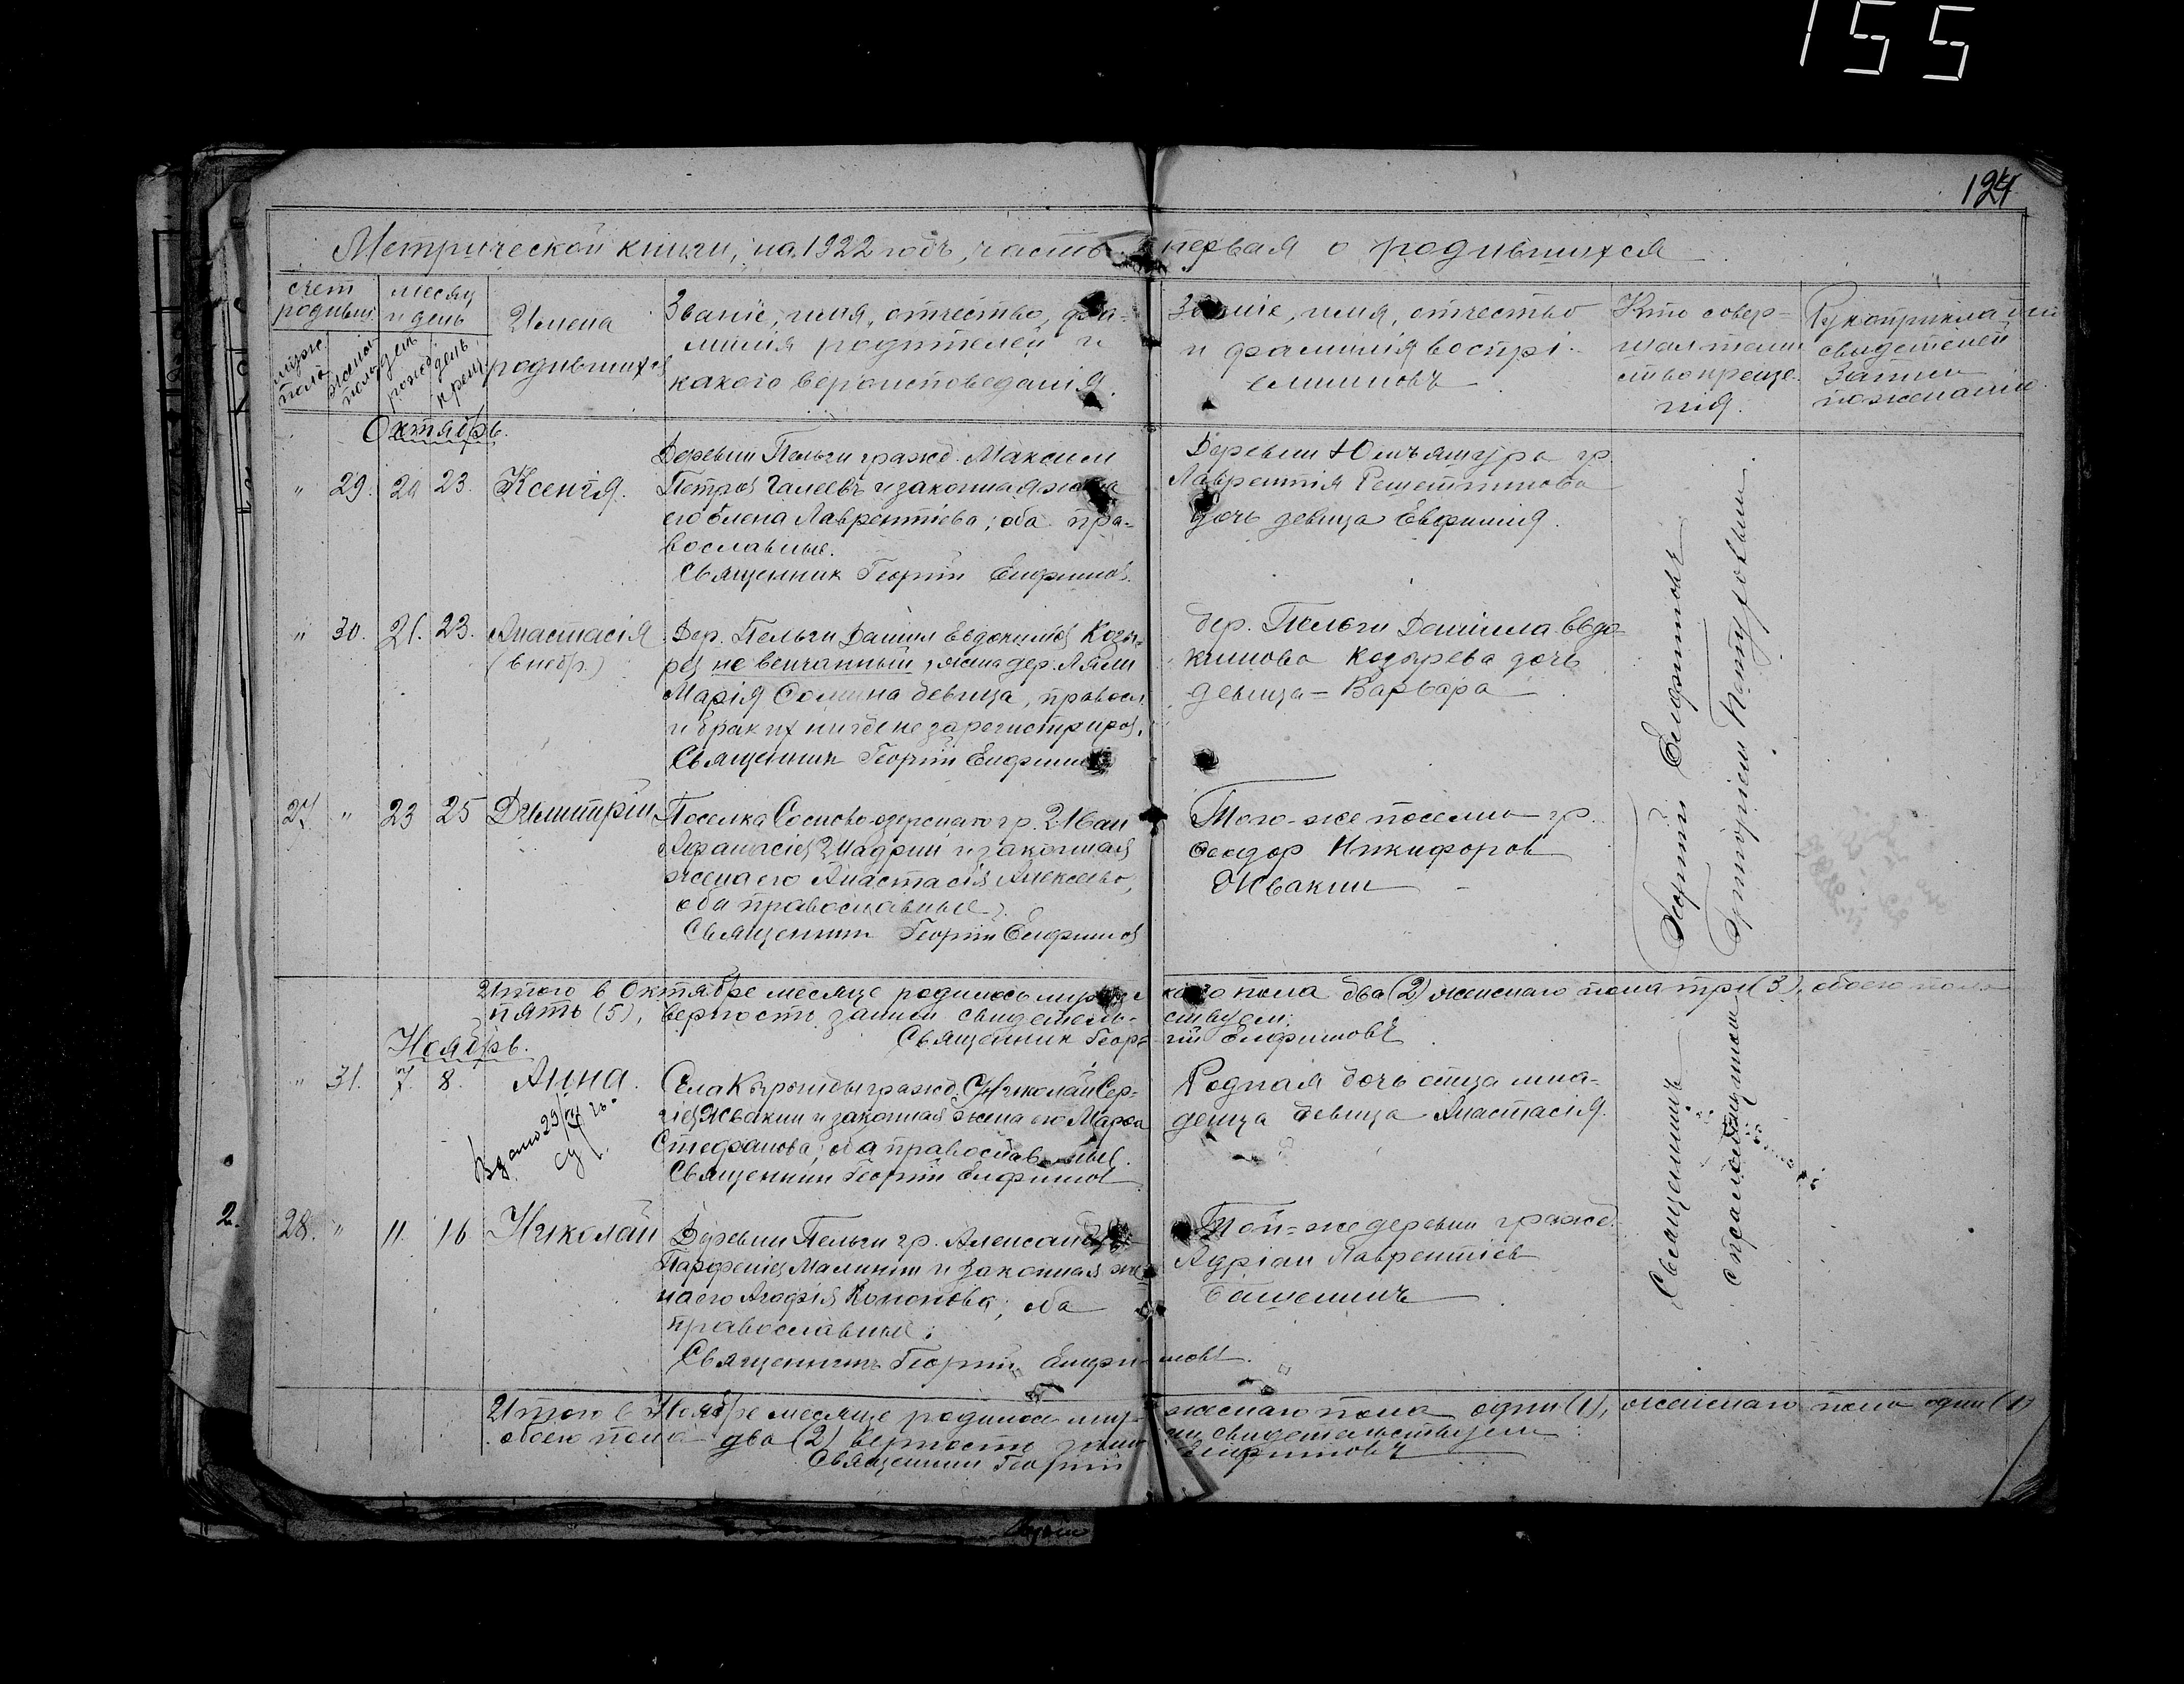 155
124
Метрической книги, на 1922 годъ, часть первая о родившихся
счет родивш.
мужс. пола
женск. пола
месяц и день
день рожд.
день крещ.
Имена
родившихся
Званіе, имя, отчество, фа-
милия родителей и
какого вероисповеданія
Званіе, имя, отчество
и фамилія воспрі-
емниковъ
Кто совер-
шал таин
ство креще-
нія.
Рукоприкладствіе
свидетелей
записи
по желанію
Октябрь.
" 29. 20 23. Ксенія.
Деревни Пельги гражд. Максим
Петров Галеевъ и законная жена
его Елена Лаврентіева; оба пра-
вославные.
Священник Георгій Елфимов.
Деревни Юмъяшура гр.
Лаврентія Решетникова
дочь девица Евфимія.
" 30. 21. 23. Анастасія
(внебр.)
Дер. Пельги Даниил Евдокимов Козы-
рев не венчанный, жена дер. Ляли
Марія Сомина девица, правосл.
и брак их нигде не зарегистриров.
Священник Георгій Елфимов
дер. Пельги Даниила Евдо-
кимова Козырева дочь
девица - Варвара
27 " 23 25 Димитрій
Поселка Сосново-озерскаго гр. Иван
Афанасіев Шадрин и законная
жена его Анастасія Алексеева,
оба православные.
Священник Георгій Елфимов
Того-же поселка гр.
Феодор Никифоров
Жвакин
Итого в Октябре месяце родилось мужскаго пола два (2) женскаго пола три (3), обоего пола
пять (5), верность записи свидетельствуем:
Священник Георгій Елфимовъ
Ноябрь.
" 31. 7. 8. Анна.
Выдано 29/
Села Кыройды гражд. Николай Сер-
гіев Жвакин и законная жена его Марфа
Стефанова; оба православные.
Священник Георгій Елфимов
Родная дочь отца мла-
денца девица Анастасія.
2.
28. " 11. 16 Николай
Деревни Пельги гр. Александр
Парфеніев Малинин и законная же-
на его Агафія Кононова; оба
православные.
Священникъ Георгій Елфимовъ.
Той-же деревни гражд.
Адріан Лаврентіев
Башенинъ
Итого в Ноябре месяце родилось мужескаго пола один (1), женскаго пола один (1)
обоего пола два (2) верность записи свидетельствуем:
Священник Георгій Елфимовъ
Священникъ Георгій Елфимовъ
с псаломщиком Григоріем Петуховым.